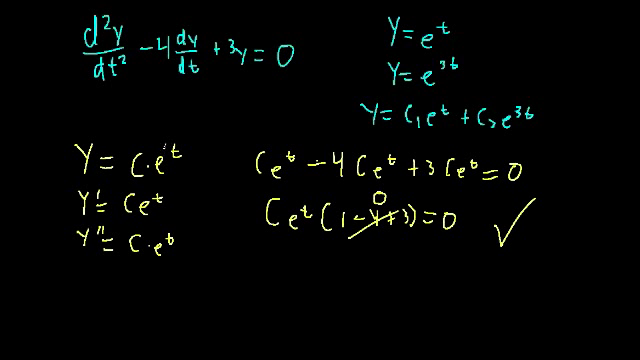 d²y/dt² - 4 dy/dt + 3y = 0
y = e^t
y = e^3t
y = c₁e^t + c₂e^3t
y = c·e^t
y' = ce^t
y'' = c·e^t
Ce^t - 4Ce^t + 3Ce^t = 0
Ce^t (1 - 4 + 3) = 0
0
✓